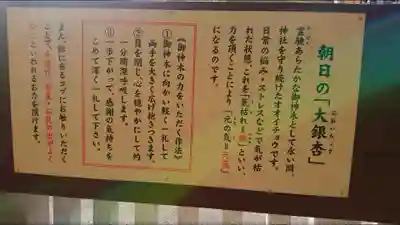 朝日の「大銀杏」
霊験あらたかな御神木として永い間、
神社を守り続けたオオイチョウです。
日常の悩み・ストレスなどで気が枯
れた状態、これを「気枯れ=穢」といい、
力を頂くことにより「元の気=元気」
になるのです。
《御神木の力をいただく作法》
①御神木に向かい軽く一礼して
両手を大きく広げ抱きつきます。
②目を閉じ、心を穏やかにして約
一分間深呼吸します。
③一歩下がって、感謝の気持ちを
こめて深く一礼して下さい。
また、幹に在るコブにお触りいただく
ことで、
といわれるお力を頂けます。